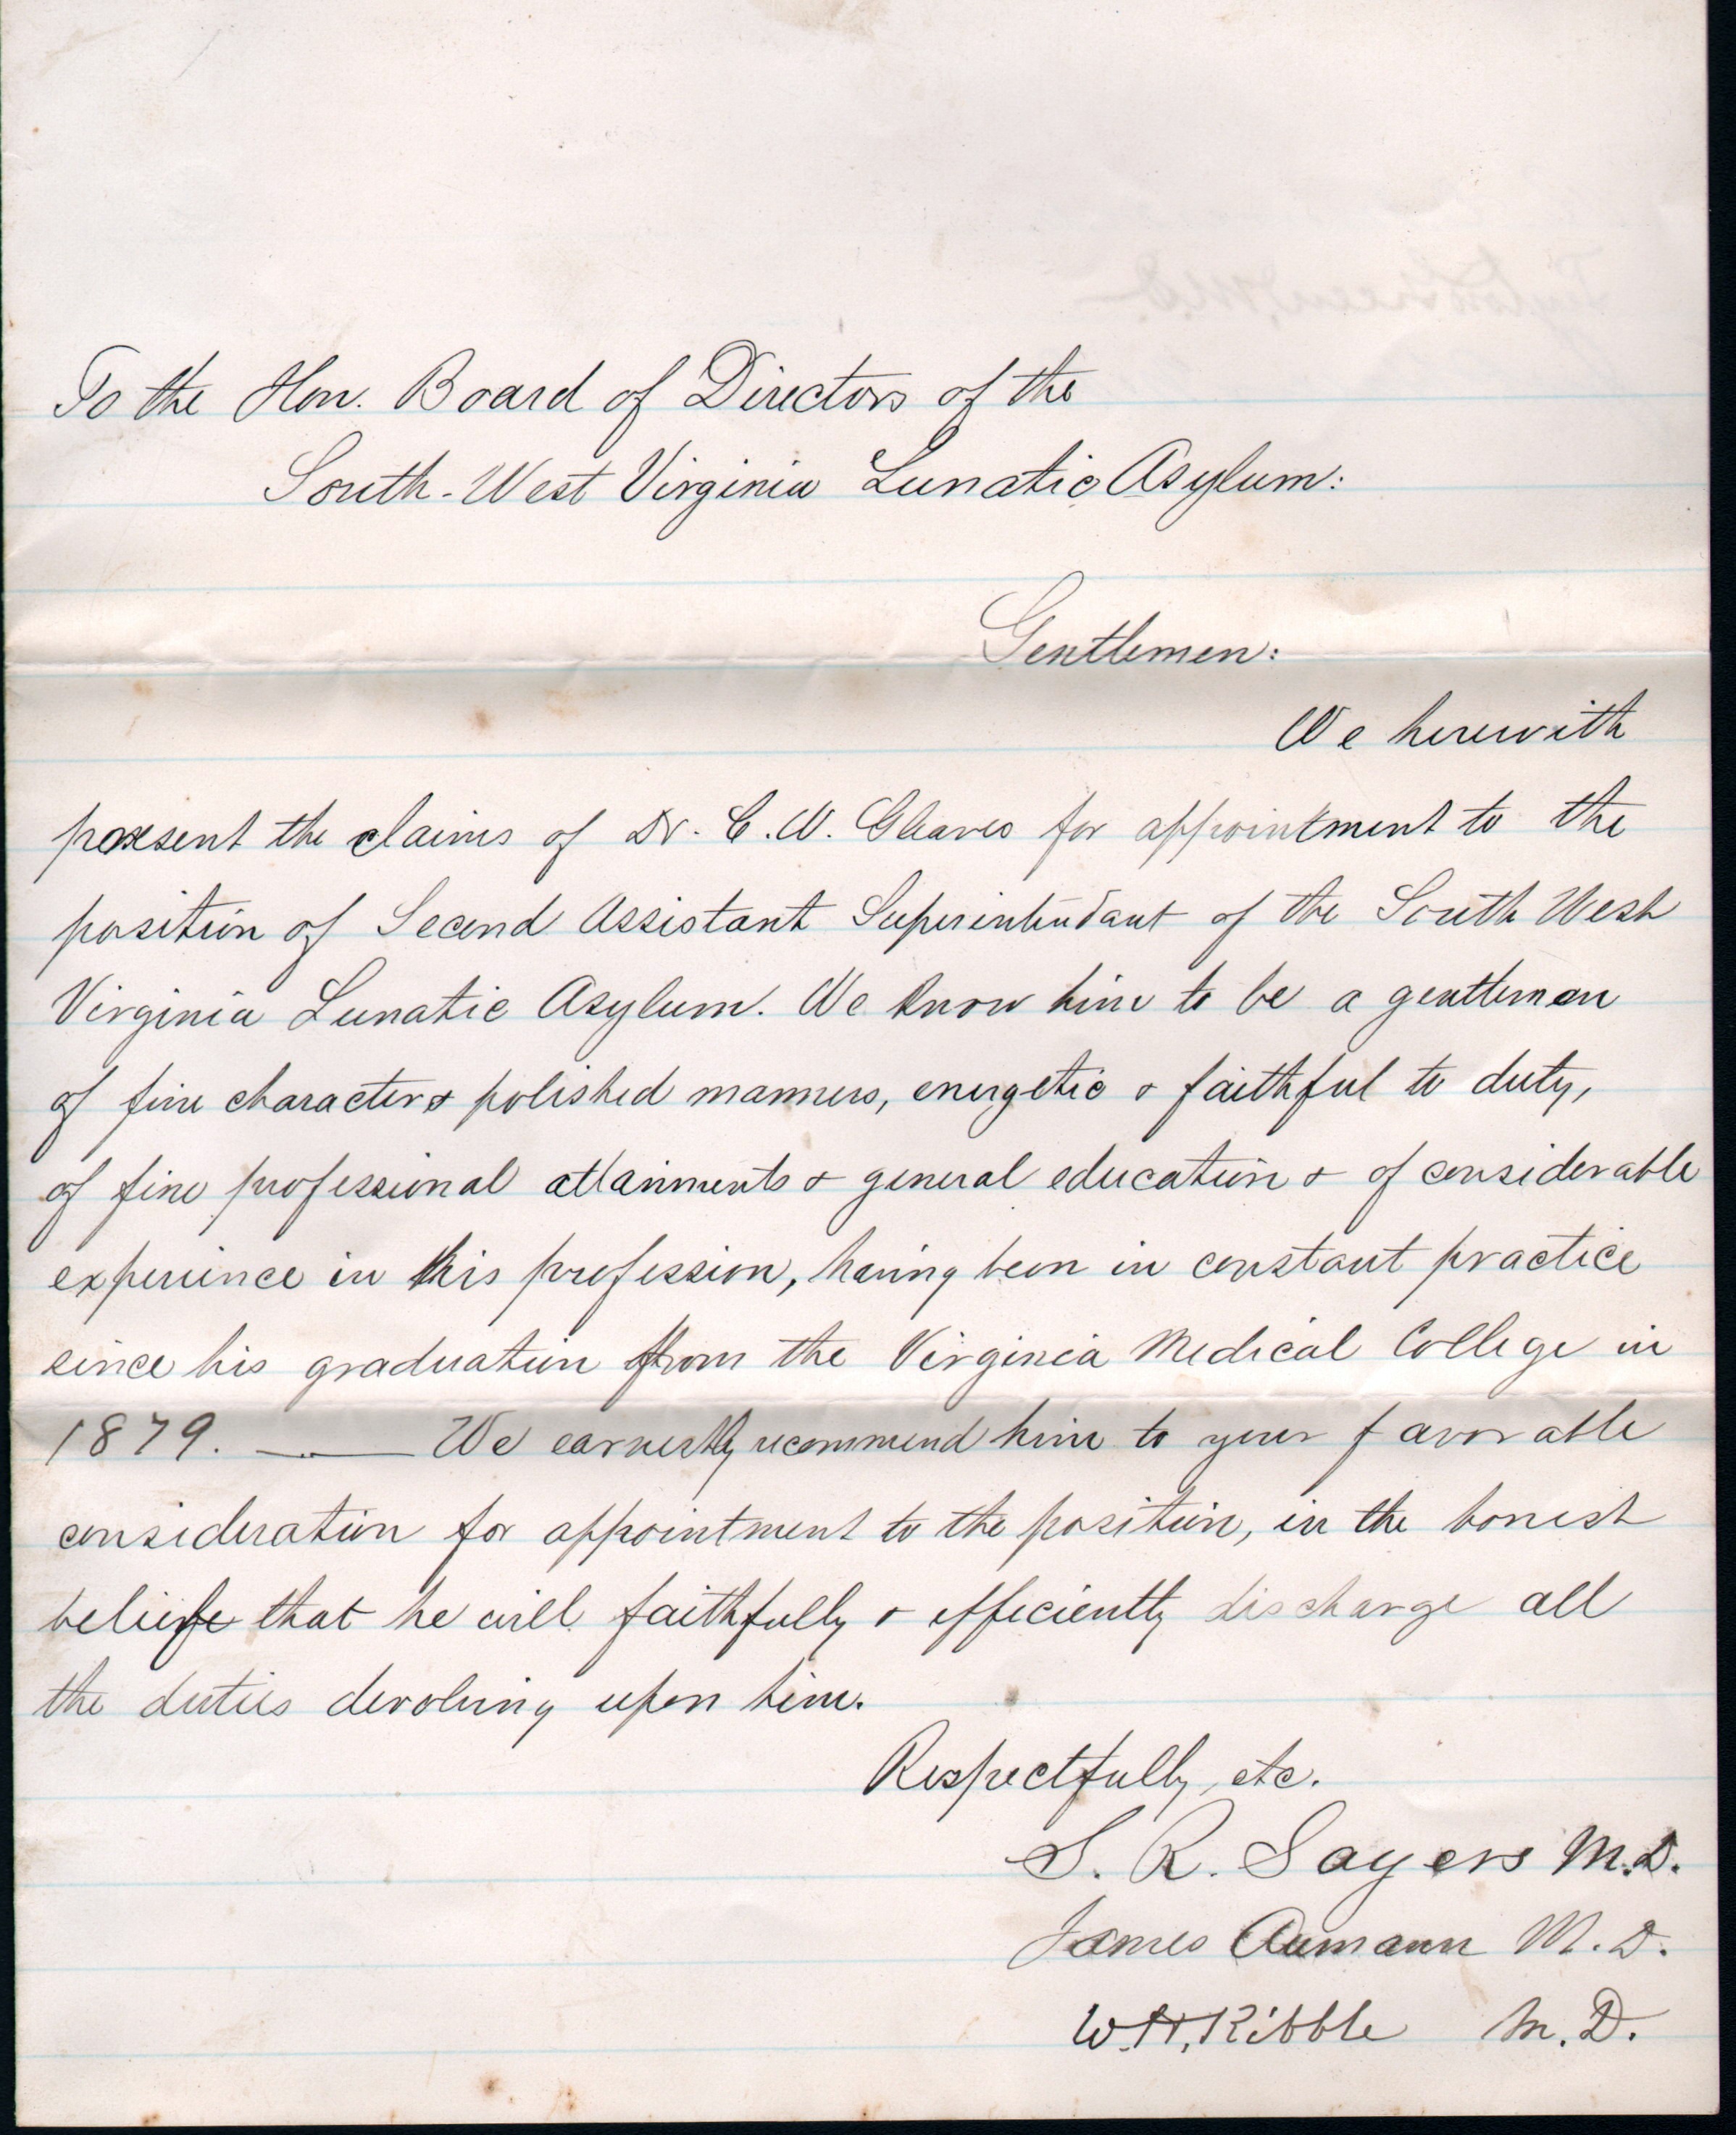 To the Hon. Board of Directors of the
South-West Virginia Lunatic Asylum:
Gentlemen:
We herewith
present the claims of Dr. C. W. Gleaves for appointment to the
position of Second Assistant Superintendant of the South West
Virginia Lunatic Asylum. We know him to be a gentleman
of fine character & polished manners, energetic & faithful to duty,
of fine professional attainments & general education & of considerable
experience in his profession, having been in constant practice
since his graduation from the Virginia Medical College in
1879. —— We earnestly recommend him to your favorable
consideration for appointment to the position, in the honest
beliefe that he will faithfully & efficiently discharge all
the duties devolving upon him.
Respectfully, etc.
S. R. Sayers M.D.
James Aumann M.D.
W.H. Ribble M.D.